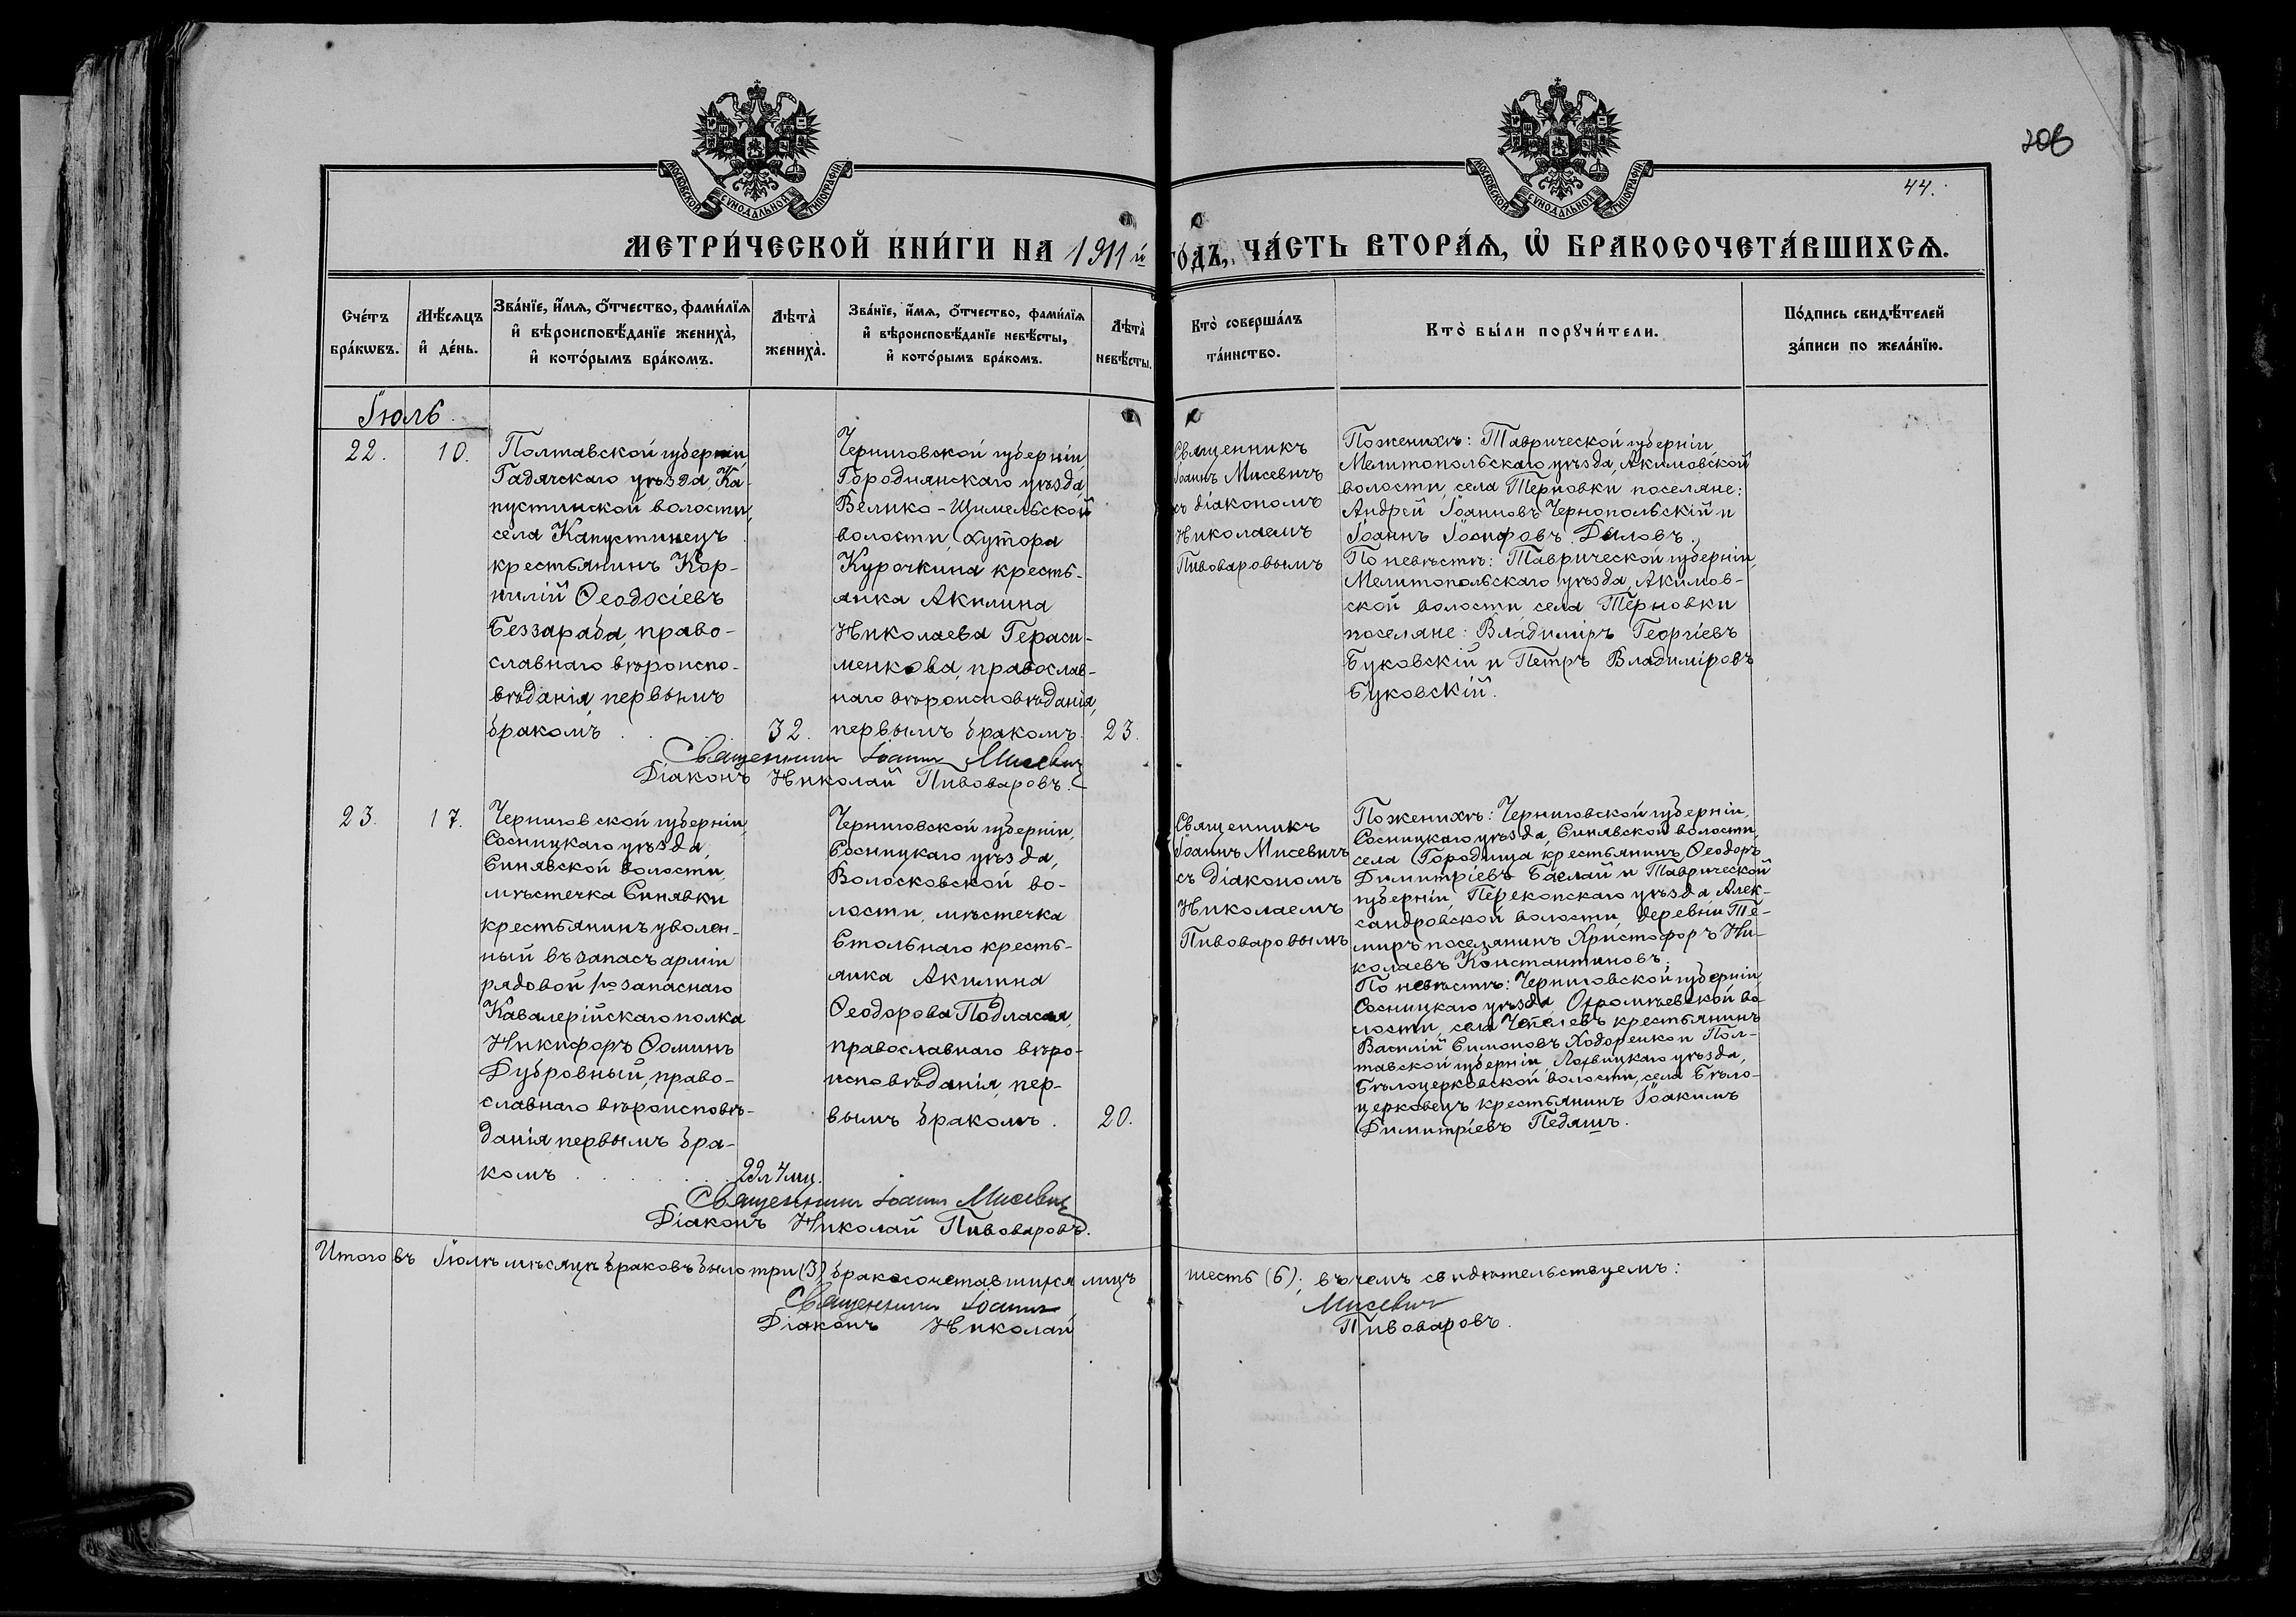 206
44.
МОСКОВСКОЙ СУНОДАЛЬНОЙ ТИПОГРАФІИ
МОСКОВСКОЙ СУНОДАЛЬНОЙ ТИПОГРАФІИ
МЕТРИ́ЧЕСКОЙ КНИ́ГИ НА 1911 й ГО́ДЪ, ЧА́СТЬ ВТОРА́Ѧ, Ѽ БРАКОСОЧЕТА́ВШИХСѦ.
Сче́тъ
бра́кѡвъ.
Мѣ́сѧцъ
и҆ де́нь.
Зва́нїе, и҆́мѧ, ѻ҆́тчество, фами́лїѧ
и҆ вѣроисповѣ́данїе жениха̀,
и҆ кото́рымъ бра́комъ.
Лѣта̀
жениха̀.
Зва́нїе, и҆́мѧ, ѻ҆́тчество, фами́лїѧ
и҆ вѣроисповѣ́данїе невѣ́сты,
и҆ кото́рымъ бра́комъ.
Лѣта̀
невѣ́сты.
Кто̀ соверша́лъ
та́инство.
Кто̀ бы́ли порꙋчи́тели.
По́дпись свидѣ́телей
за́писи по жела́нїю.
Іюль.
22.
10.
Полтавской губерніи
Гадячскаго уѣзда, Ка-
пустинской волости,
села Капустинецъ
крестьянинъ Кор-
нилій Ѳеодосіевъ
Беззараба, право-
славнаго вѣроиспо-
вѣданія, первымъ
бракомъ . . .
32.
Черниговской губерніи
Городнянскаго уѣзда,
Велико-Щимельской
волости, хутора
Курочкина кресть-
янка Акилина
Николаева Гераси-
менкова, православ-
наго вѣроисповѣданія,
первымъ бракомъ.
23.
Священникъ
Іоаннъ Мисевичъ
съ діакономъ
Николаемъ
Пивоваровымъ
По женихѣ: Таврической губерніи,
Мелитопольскаго уѣзда, Акимовской
волости, села Терновки поселяне:
Андрей Іоанновъ Чернопольскій и
Іоаннъ Іосифовъ Диловъ.
По невѣстѣ: Таврической губерніи,
Мелитопольскаго уѣзда, Акимов-
ской волости села Терновки
поселяне: Владиміръ Георгіевъ
Буковскій и Петръ Владиміровъ
Буковскій.
Священникъ Іоаннъ Мисевичъ
Діаконъ Николай Пивоваровъ.
23.
17.
Черниговской губерніи,
Сосницкаго уѣзда,
Синявской волости,
мѣстечка Синявки
крестьянинъ уволен-
ный въ запасъ арміи
рядовой 1го запаснаго
Кавалерійскаго полка
Никифоръ Ѳоминъ
Дубровный, право-
славнаго вѣроисповѣ-
данія первымъ бра-
комъ . . . .
29 л 4 мц.
Черниговской губерніи,
Сосницкаго уѣзда,
Волосковской во-
лости, мѣстечка
Стольнаго кресть-
янка Акилина
Ѳеодорова Подласая,
православнаго вѣро-
исповѣданія, пер-
вымъ бракомъ.
20.
Священникъ
Іоаннъ Мисевичъ
съ діакономъ
Николаемъ
Пивоваровымъ
По женихѣ: Черниговской губерніи,
Сосницкаго уѣзда, Синявской волости,
села Городища крестьянинъ Ѳеодоръ
Димитріевъ Баглай и Таврической
губерніи, Перекопскаго уѣзда Алек-
сандровской волости, деревни Те-
миръ поселянинъ Христофоръ Ни-
колаевъ Константиновъ.
По невѣстѣ: Черниговской губерніи,
Сосницкаго уѣзда, во-
лости, села крестьянинъ
Василій Симоновъ Ходоренко и Пол-
тавской губерніи, Лохвицкаго уѣзда,
Бѣлоцерковской волости, села Бѣло-
церковецъ крестьянинъ Іоакимъ
Димитріевъ Педяшъ.
Священникъ Іоаннъ Мисевичъ
Діаконъ Николай Пивоваровъ.
Итого въ Іюлѣ мѣсяцѣ браковъ было три (3) бракосочетавшихся лицъ шесть (6); въ чемъ свидѣтельствуемъ:
Священникъ Іоаннъ Мисевичъ
Діаконъ Николай Пивоваровъ.